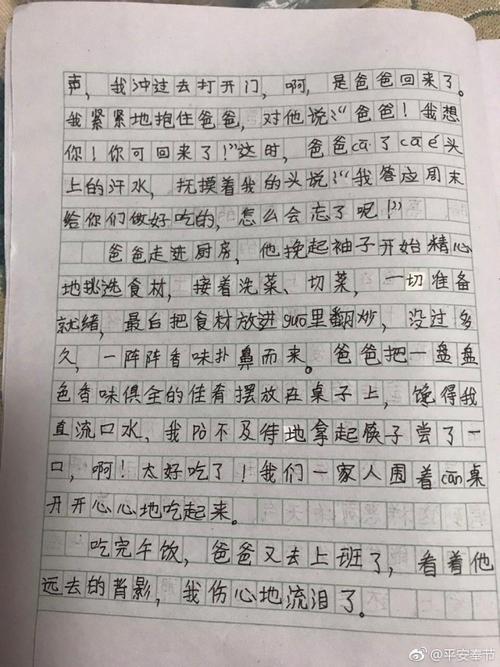 声，我冲过去打开门，啊，是爸爸回来了。
我紧紧地抱住爸爸，对他说：“爸爸！我想
你！你可回来了！”这时，爸爸cā了cā é头
上的汗水，抚摸着我的头说：“我答应周末
给你们做好吃的，怎么会忘了呢！”
爸爸走进厨房，他挽起袖子开始精心
地挑选食材，接着洗菜、切菜，一切准备
就绪，最后把食材放进guo里翻炒，没过多
久，一阵阵香味扑鼻而来。爸爸把一盘盘
色香味俱全的佳肴摆放在桌子上，馋得我
直流口水，我Pò不及待地拿起筷子尝了一
口，啊！太好吃了！我们一家人围着cān桌
开开心心地吃起来。
吃完午饭，爸爸又去上班了，看着他
远去的背影，我伤心地流泪了。
@平安奉节